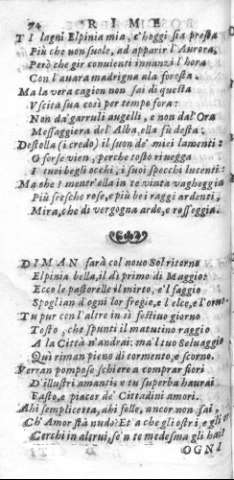 74 RIME
TI lagni Elpinia mia, c'hoggi sia presta
Più che non suole, ad apparir l'Aurora,
Però che gir conuienti innanzi l'hora
Con l'auara madrigna ala foresta.
Ma la vera cagion non sai di questa
Vscita sua così per tempo fora:
Non da' garruli augelli, e non dal'Ora
Messaggiera del'Alba, ella fù desta:
Destolla (i credo) il suon de' miei lamenti:
O forse vien, perche tosto riuegga
I tuoi begli occhi, i suoi specchi lucenti:
Ma che? mentr'ella in te vinta vagheggia
Più fresche rose, e più bei raggi ardenti,
Mira, che di vergogna arde, e rosseggia.
DIMAN farà col nouo Sol ritorno
Elpinia bella, il dì primo di Maggio:
Ecco le pastorelle il mirto, e'l faggio
Spoglian d'ogni lor fregio, e l'elce, e l'orno
Tu pur con l'altre in sì festiuo giorno
Tosto, che spunti il matutino raggio
A la Città n'andrai: ma'l tuo Seluaggio
Qui riman pieno di tormento, e scorno.
Verran pompose schiere a comprar fiori
D'illustri amanti, e tu superba haurai
Fasto, e piacer de' Cittadini amori.
Ahi semplicetta, ahi folle, ancor non sai,
Ch'Amor stà nudo? Et a che gli ostri, e gli
Cerchi in altrui, se'n te medesma gli hai?
OGNI